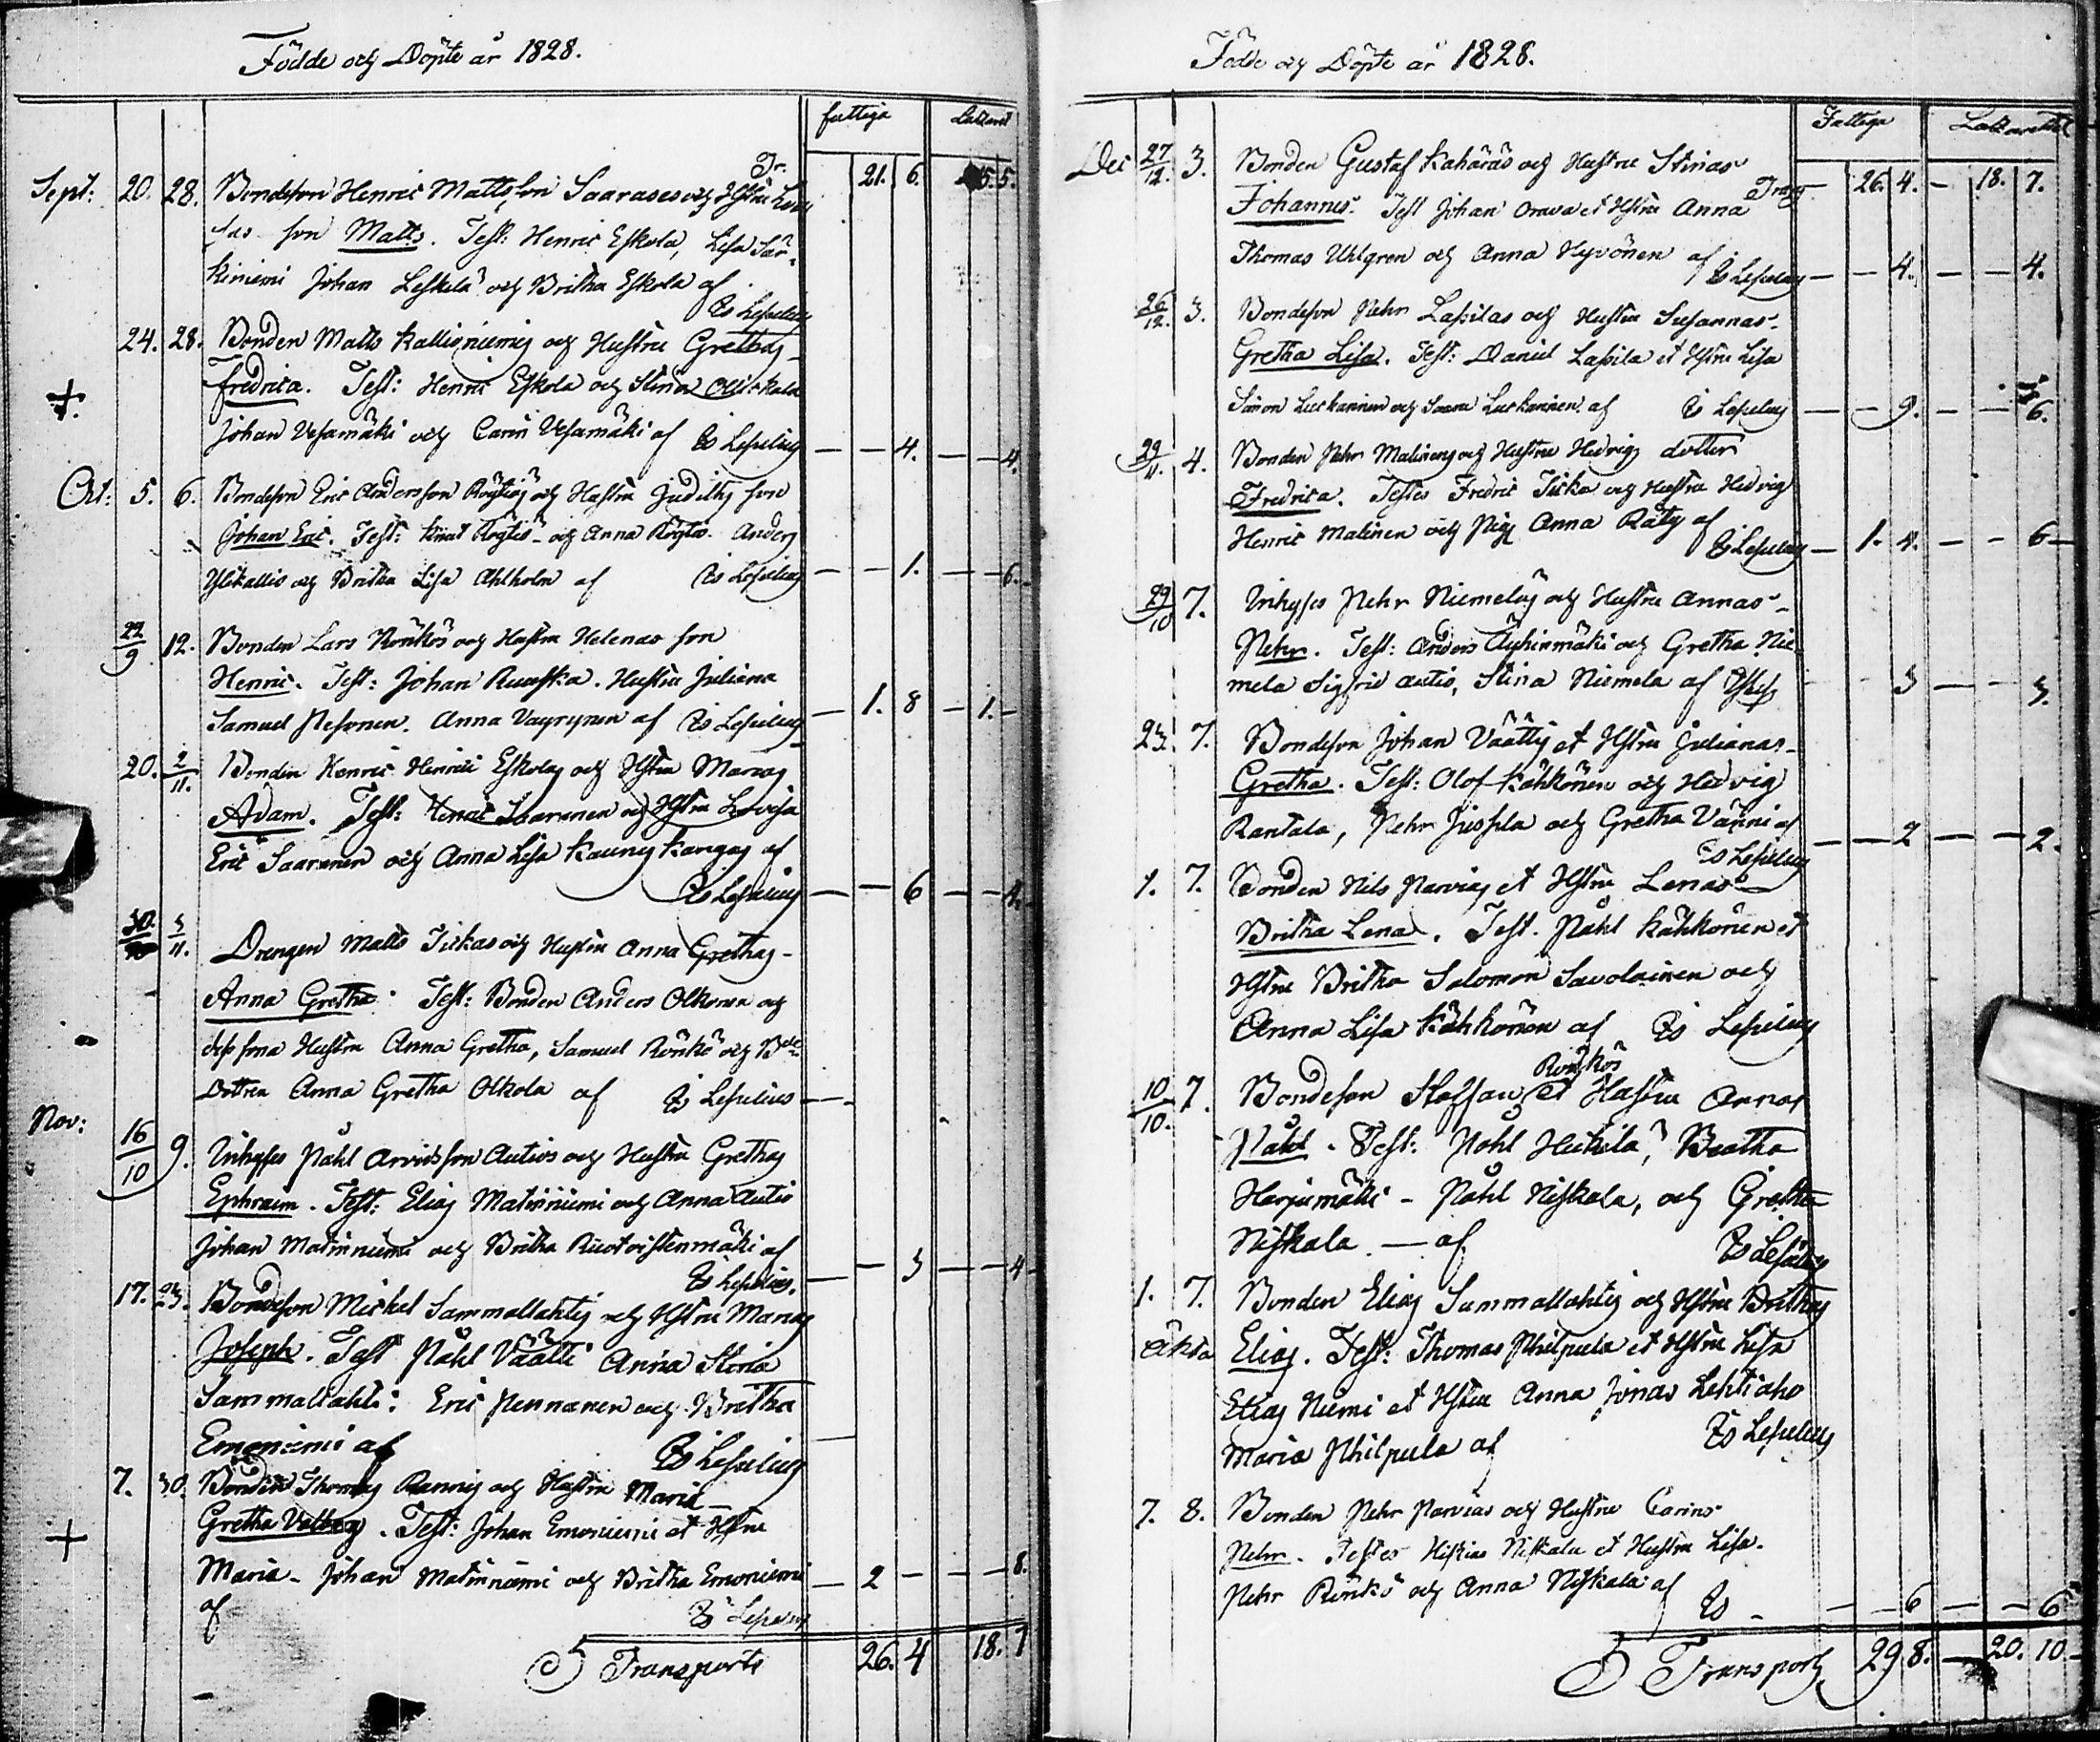 Födde och Döpte år 1828.
fattiga Lazaret
Tr. 21. 6. 5.
Sept: 20. 28. Bondeson Henric Mattsson Saarases och Hstru
son Matts. Test: Henric Eskola, Lisa Sär-
kiniemi Johan Leskelä och Britha Eskola af
Es Leselius
24. 28. Bonden Matts Kallioniemis och Hustru Grethas
Fredrica. Test: Henric Eskola och Stina
Johan Vesamäki och Carin Vesamäki af Es Leselius — — 4. — — 4.
Oct: 5. 6. Bondeson Eric Andersson och Hustru Judiths son
Johan Eric. Test: Knut och Anna Anders
Ylikallio och Britha Lisa Ahlholm af Es Leselius — — 1. — — 6.
22/9 12. Bonden Lars Rönkös och Hustru Helenas son
Henric. Test: Johan Ruuska. Hustru Juliana
Samuel Pesonen. Anna Vayrynen af Es Leselius — 1. 8 — 1. —
20. 2/11. Bonden Henric Henrici Eskolas och Hstru Marias
Adam. Test: Henric Saaranen och Hstru Lovisa
Eric Saaranen och Anna Lisa Kaunis Kangas af
Es Leselius — — 6 — — 4.
30. 3/11. Drengen Matts Tickas och Hustru Anna Grethas-
Anna Gretha. Test: Bonden Anders Olkonen och
dess Hustru Anna Gretha, Samuel Rönkö och Bde
Dottren Anna Gretha Olkola af Es Leselius — — .
Nov: 16/10 9. Inhyses Påhl Arvidsson Autios och Hustru Grethas
Ephraim. Test: Elias Matinniemi och Anna Autio
Johan Matinniemi och Britha af
Es Leselius. — — 3 — — 4
17. 23. Bondeson Michel Sammallahtis och Hstru Marias
Joseph. Test Påhl Väätti Anna Stina
Sammallahti: Eric Pennanen och Britha
Emoniemi af Es Leselius —
7. 30. Bonden Thomas Rannis och Hustru Maria —
Gretha Valborg. Test: Johan Emoniemi et Hstru
Maria - Johan Matinniemi och Britha Emoniemi — 2 — — — 8.
af Es Leselius
Transporte 26. 4 18. 7
Födde och Döpte år 1828.
Fattiga Lazarettet
Dec 27/12. 3. Bonden Gustaf Kaharas och Hustru Stinas
Johannes. Test Johan Orava et Hstru Anna Trsp. — 26. 4. — 18. 7.
Thomas Uhlgren och Anna Hyvönen af Es Leselius — — 4. — — 4.
26/12. 3. Bondeson Pehr Lassilas och Hustru Susannas-
Gretha Lisa. Test: Daniel Lassila et Hstru Lisa
Simon Luckarinen och Luckarinen af Es Leselius — — 9. — — 6.
29/11. 4. Bonden Pehr Malinens och Hustru Hedvigs dotter
Fredrica. Testes Fredric Ticka och Hustru Hedvig
Henric Malinen och Pig Anna Räty af
Es Leselius — 1. 4. — — 6 —
29/10 7. Inhyses Pehr Niemeläs och Hustru Annas-
Pehr. Test: Anders och Gretha Nie-
mela Sigfrid Autio, Stina Niemela af 3 — — 3.
23. 7. Bondeson Johan Väättis et Hstru Julianas-
Gretha. Test: Olof Kähkönen och Hedvig
Rantala, Pehr Jussila och Gretha Vänni af
Es Leselius — — 2 — — 2.
1. 7. Bonden Nils Parvias et Hstru Lenas
Britha Lena. Test. Påhl Kähkönen et
Hstru Britha Salomon Savolainen och
Anna Lisa Kähkönen af Es Leselius
Rönkös
10/10. 7. Bondeson Staffan et Hustru Annas
Påhl. Test: Pohl Heikila, Beatha
Harjumäki - Påhl Niskala, och Gretha
Niskala — af Es Leselius
1. 7. Bonden Elias Sammallahtis och Hstru Brithas
äkta Elias. Test: Thomas Philpula et Hstru Lisa
Elias Niemi et Hstru Anna Jonas Lehtiaho
Maria Philpula af Es Leselius
7. 8. Bonden Pehr Parvias och Hustru Carins
Pehr. Testes Hiskias Niskala et Hustru Lisa.
Pehr Rönkö och Anna Niskala af Es - — — 6 — — 6
Transport 29 8. — 20. 10